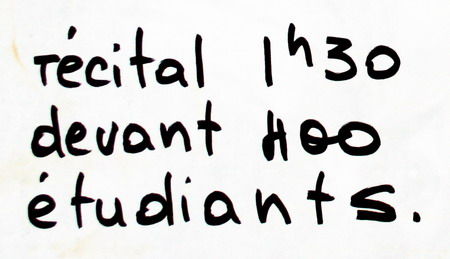 récital 1h30
devant 400
étudiants.